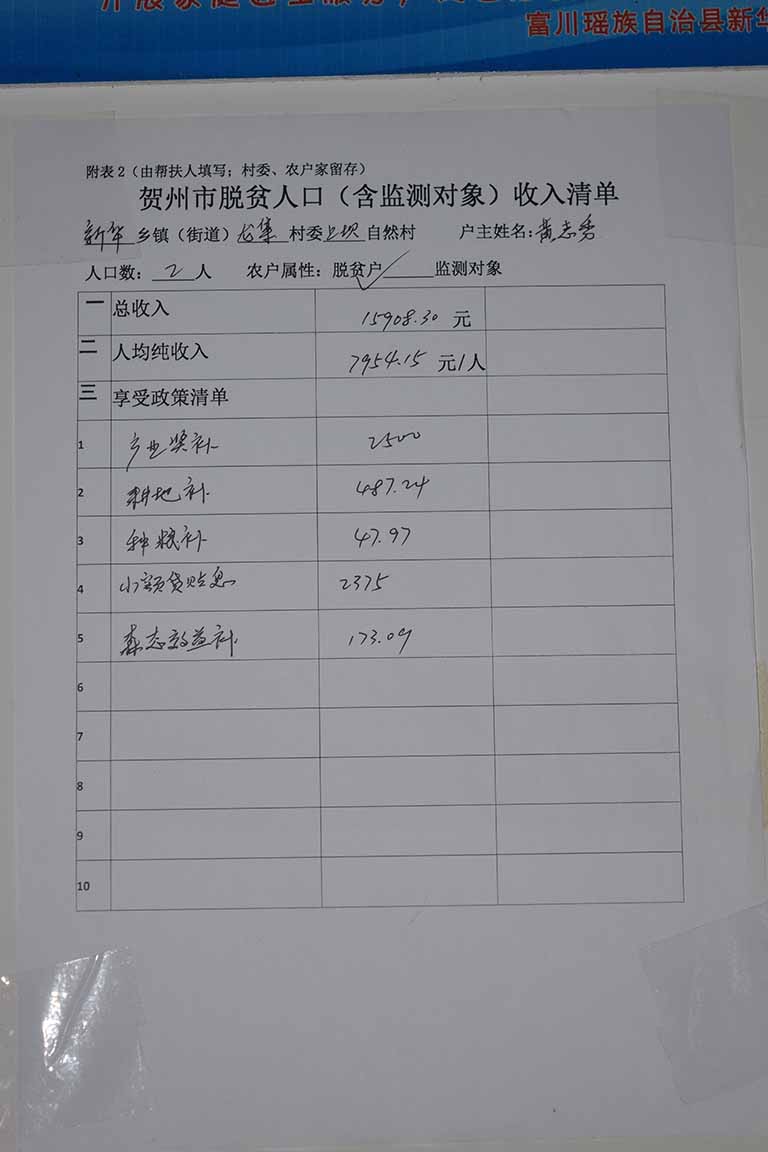 富川瑶族自治县新华
附表2（由帮扶人填写；村委、农户家留存）
贺州市脱贫人口（含监测对象）收入清单
新华 乡镇（街道）龙集 村委上坝自然村 户主姓名：黄志秀
人口数： 2 人 农户属性：脱贫户✓ 监测对象
一 总收入 15908.30 元
二 人均纯收入 7954.15 元/人
三 享受政策清单
1 产业奖补 2500
2 耕地补 487.24
3 种粮补 47.97
4 小额贷贴息 2375
5 森态效益补 173.09
6
7
8
9
10